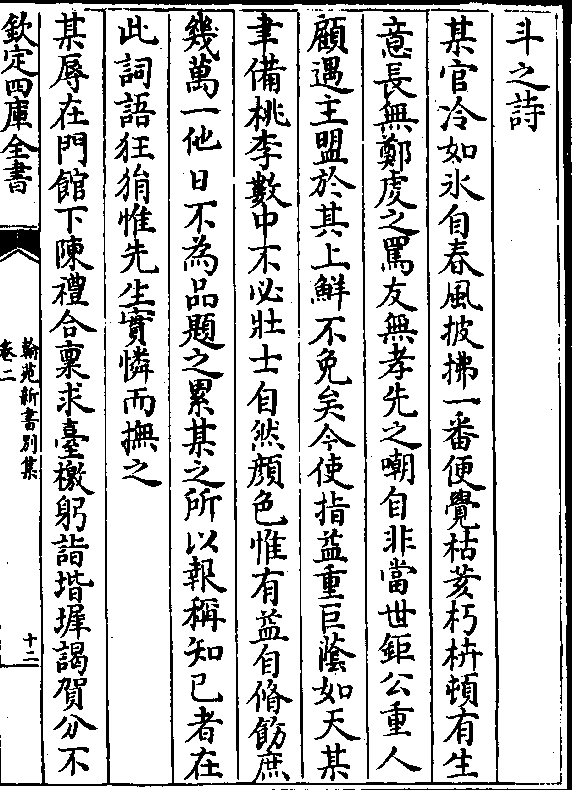 斗之詩
某官冷如氷自春風披拂一番便覺枯荄朽枿頓有生
意長無鄭虔之罵友無孝先之嘲自非當世鉅公重人
顧遇主盟於其上鮮不免矣今使指益重巨蔭如天某
聿備桃李數中不必壯士自然顔色惟有益自脩飭庶
幾萬一他日不為品題之累某之所以報稱知已者在
此詞語狂狷惟先生實憐而撫之
某辱在門館下陳禮合禀求臺檄躬詣堦墀謁賀分不
欽定四庫全書
翰苑新書别集
卷二
十二